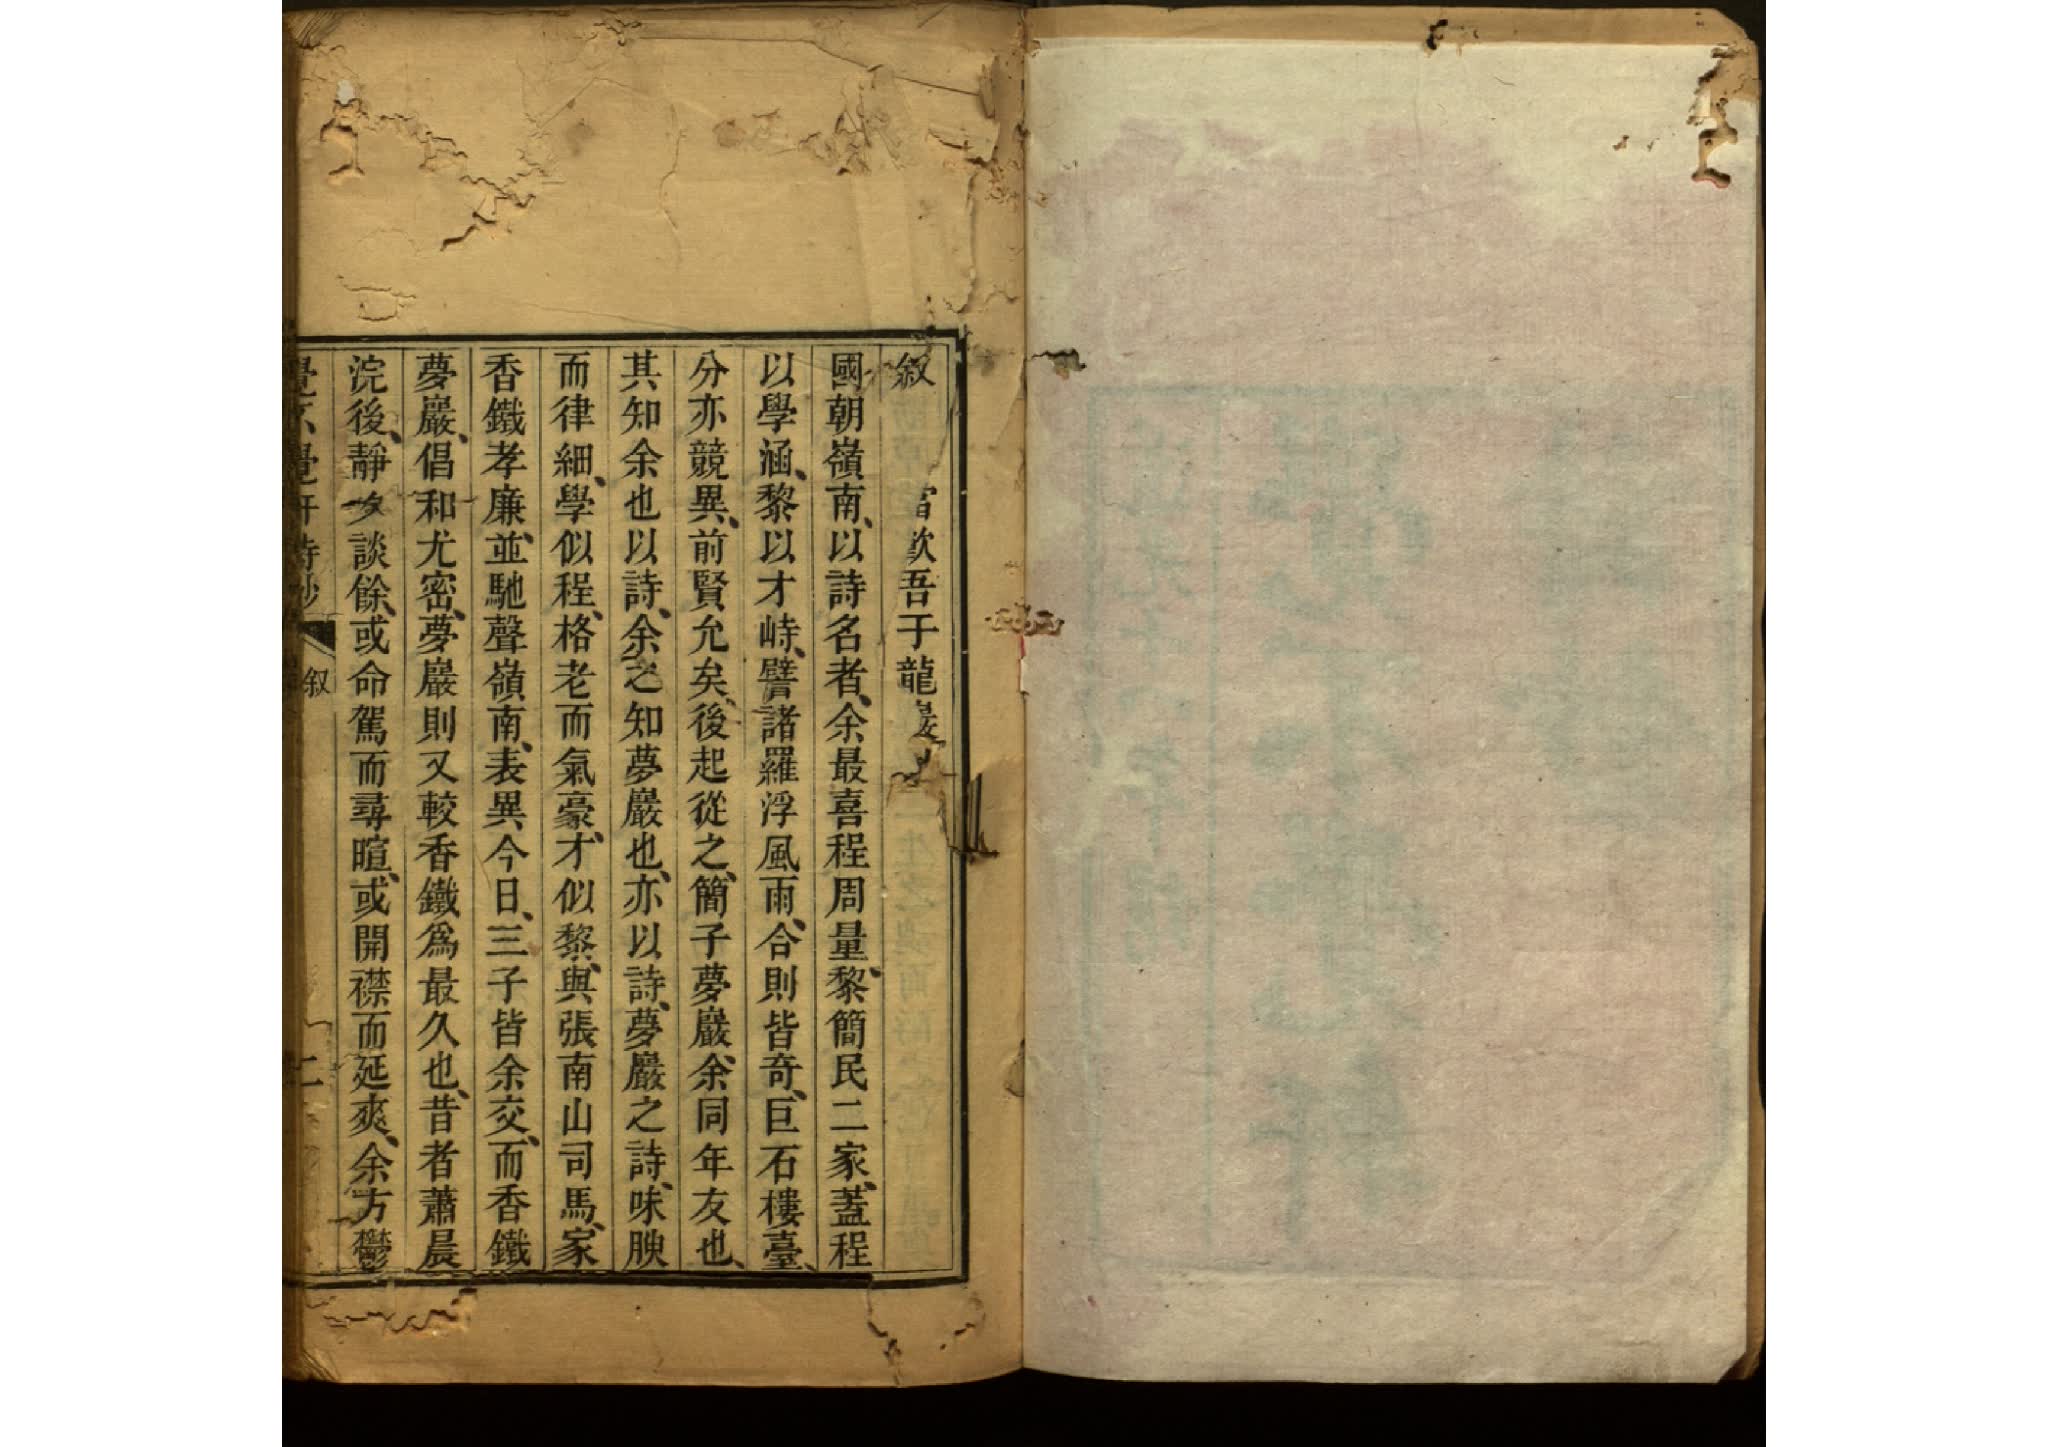 叙
歙吾子龍
國朝嶺南、以詩名者、余最喜程周量、黎簡民二家、蓋程
以學涵、黎以才峙、譬諸羅浮風雨、合則皆奇、巨石樓臺、
分亦競異、前賢允矣、後起從之、簡子夢巖、余同年友也、
其知余也以詩、余之知夢巖也、亦以詩、夢巖之詩、味腴
而律細、學似程、格老而氣豪、才似黎、與張南山司馬、家
香鐵孝廉、並馳聲嶺南、表異今日、三子皆余交、而香鐵
夢巖、倡和尤密、夢巖則又較香鐵爲最久也、昔者蕭晨
浣後、靜夕談餘、或命駕而尋暄、或開襟而延爽、余方鬱
覺不覺軒詩鈔
叙